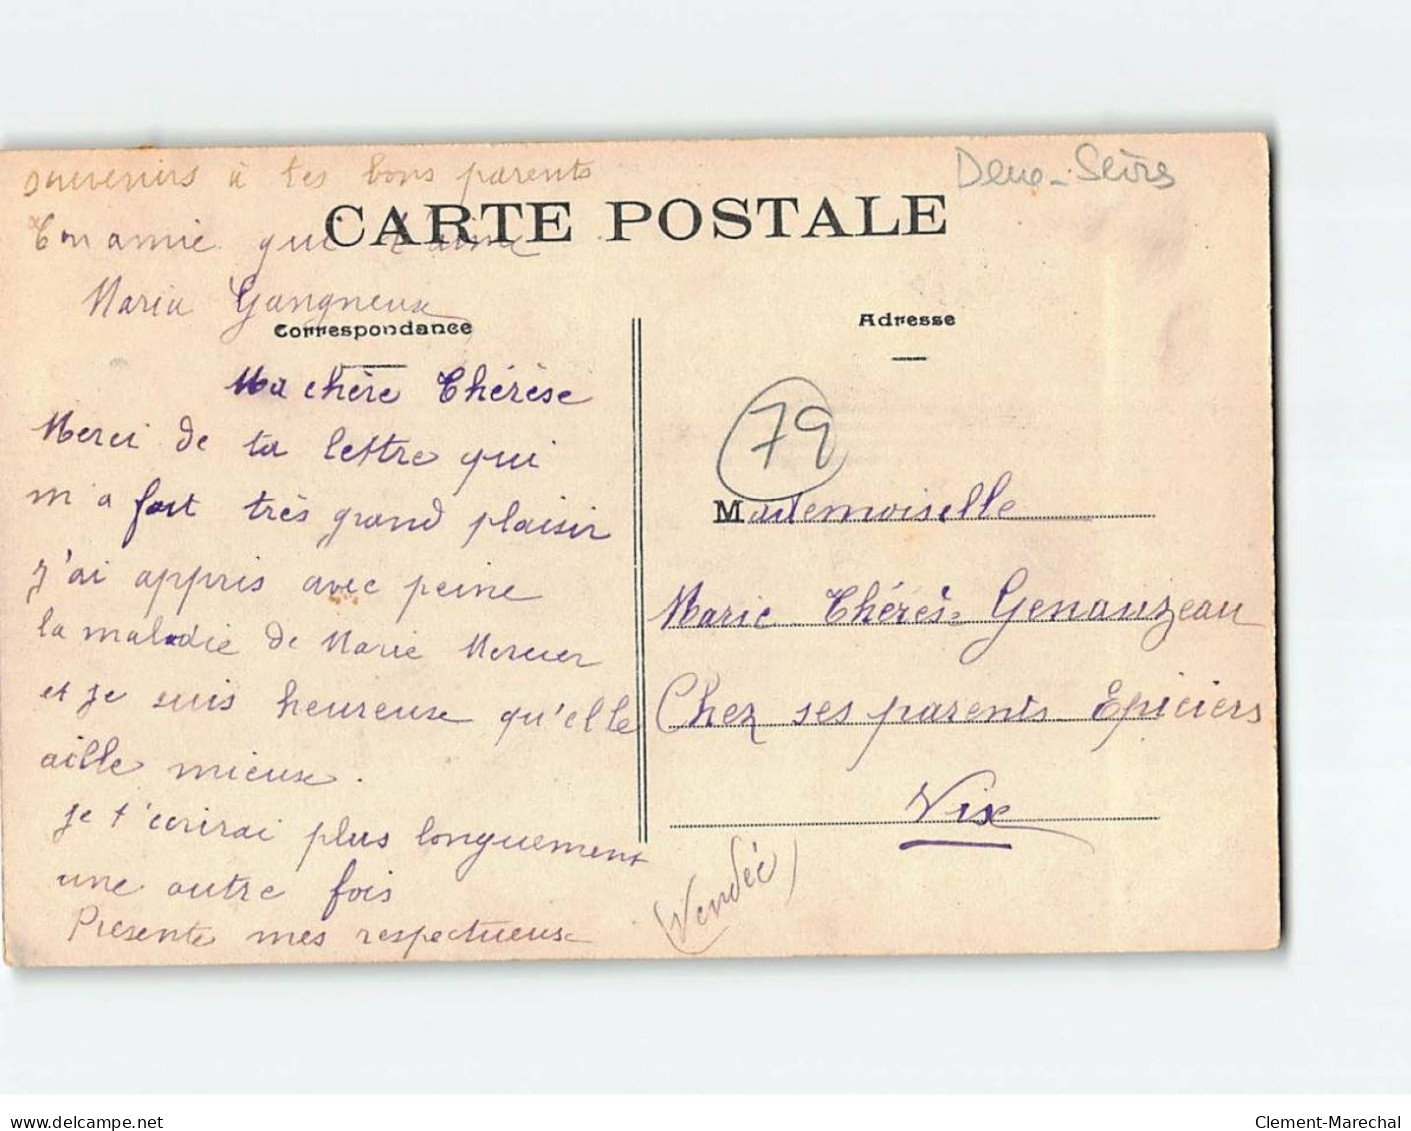 souvenirs à tes bons parents
Ton amie qui t'aime
Maria Gangneux
Deux-Sèvres
CARTE POSTALE
Correspondance
Ma chère Thérèse
Merci de ta lettre qui
m'a fait très grand plaisir
J'ai appris avec peine
la maladie de Marie Mercier
et je suis heureuse qu'elle
aille mieux.
je t'ecrirai plus longuement
une autre fois
Presente mes respectueux
Adresse
79
Mademoiselle
Marie Thérèse Genauzeau
Chez ses parents Epiciers
Vix
(Vendée)
delcampe.net
Clement-Marechal